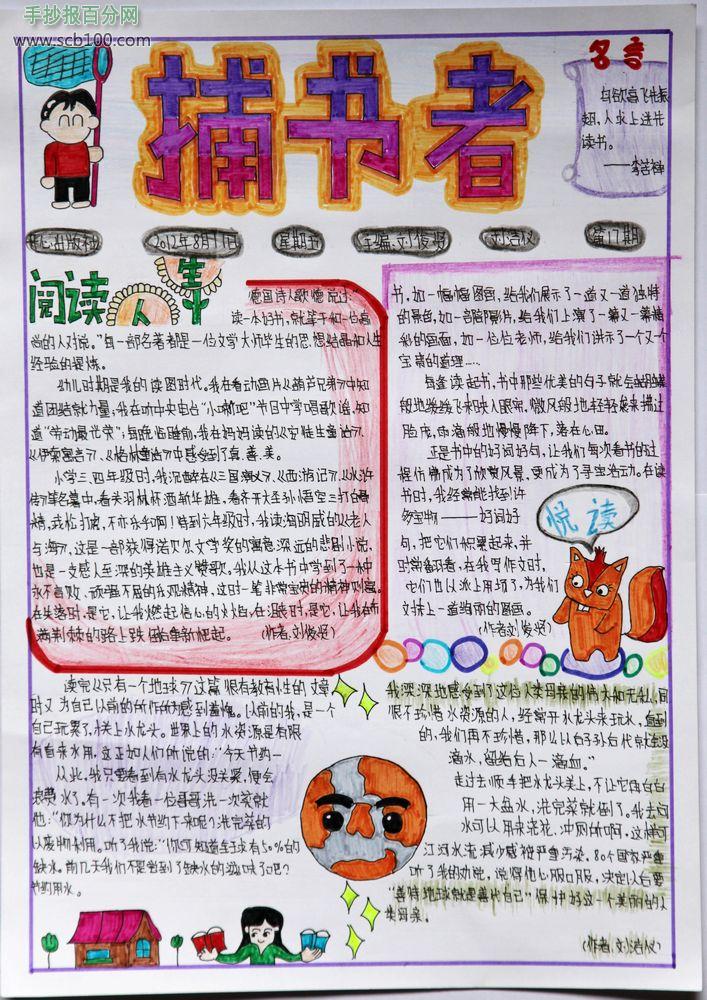 手抄报百分网
www.scb100.com
捕书者
名言
鸟欲高飞先振
翅,人求上进先
读书。
——李苦禅
开心出版社 2012年8月11日 星期五 主编:刘俊贤 刘洁仪 第17期
阅读人生
德国诗人歌德说过:"
读一本好书,就等于和一位高
尚的人对说。"每一部名著都是一位文学大师毕生的思想结晶和人生
经验的提炼。
幼儿时期是我的读图时代。我在看动画片《葫芦兄弟》中知
道团结就力量,我在听中央电台"小喇叭"节目中学唱歌谣,知
道"劳动最光荣";每晚临睡前,我在妈妈读的《安徒生童话》、
《伊索寓言》、《格林童话》中感受到了真、善、美。
小学三、四年级时,我沉醉在《三国演义》、《西游记》、《水浒
传》等名著中,看关羽杯酒斩华雄,看齐天大圣孙悟空三打白骨
精,武松打虎,不亦乐乎啊!特到六年级时,我读海明威的《老人
与海》,这是一部获得诺贝尔文学奖的寓意深远的悲剧小说,
也是一支感人至深的英雄主义赞歌。我从这本书中学到了一种
永不言败、顽强不屈的乐观精神,这时一笔非常宝贵的精神财富。
在失落时,是它,让我燃起信心的火火;在沮丧时,是它,让我在布
满荆棘的路上跌倒重新爬起。 (作者:刘俊贤)
书,如一幅幅图画,给我们展示了一道又一道独特
的景色,如一部部影片,给我们上演了一幕又一幕精
彩的画面,如一位位老师,给我们讲示了一个又一个
宝藏的道理……
每逢读起书,书中那些优美的句子就会
般地纷纷飞来映入眼帘,微风般地轻轻袭来拂过
脸庞,雨滴般地慢慢降下,落在心田。
正是书中的好词好句,让我们每次看书的过
程仿佛成为了欣赏风景,更成为了寻宝活动。在读
书时,我经常能找到许
多宝物——好词好
句,把它们积累起来,并
时常翻看,在我写作文时,
它们也以派上用场了,为我们
文抹上一道绚丽的图画。
(作者:刘俊贤)
悦读
读完《只有一个地球》这篇很有教育性的文章
时又为自己以前的所作所为感到羞愧。以前的我,是一个
自己玩累了,未关上水龙头。世界上的水资源是有限
有自来水用,这正如人们所说的:"今天节约一
从此,我只要看到有水龙头没关紧,便会
浪费水了。有一次我看一位哥哥洗一次菜就
他:"你为什么不把水节约下来呢?洗完菜的
以废物利用。听了我说:"你可知道全球有50%的
缺水。前几天我们不是尝到了缺水的滋味了吧?
节约用水。
我深深地感受到了这位人类母亲的伟大和无私,同
很不珍惜水资源的人,经常开水龙头来玩水,直到
的,我们再不珍惜,那么以后子孙后代就会没
滴水,留给后人一滴血。"
走过去顺手把水龙头关上,不让它再白白
用一大盆水,洗完菜就倒了。我去问
水可以用来浇花、冲厕所啊,这样可
江河水流减少感被严重污染。80个国家严重
听了我的劝说,说得他心服口服,决定以后要
"善待地球就是善代自己"保护好这一个美丽的人
类母亲。
(作者:刘洁仪)